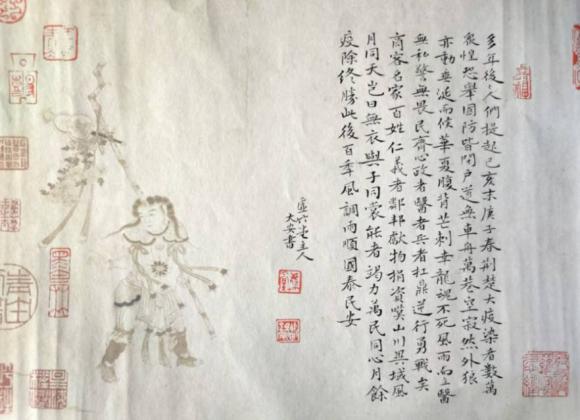 多年後人們提起己亥末庚子春荊楚大疫染者數萬
衆惶恐舉國防皆閉戶道無車舟萬巷空寂然外狼
亦動垂涎而候華夏腹背芒刺幸龍魂不死風雨而立醫
無私警無畏民齊心政者醫者兵者扛鼎逆行勇戰矣
商客名家百姓仁義者鄰邦獻物捐資嘆山川異域風
月同天岂曰無衣與子同裳能者竭力萬民同心月餘
疫除終勝此後百年風調雨順國泰民安
主人
大安書